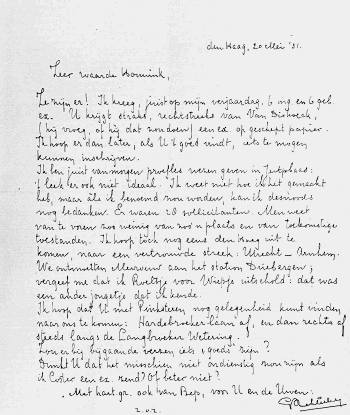 den Haag, 20 Mei '31.
Zeer waarde Bonnink,
Ze zijn er! Ik kreeg, juist op mijn verjaardag, 6 ing. en 6 geb.
ex. U krijgt straks, rechtstreeks van Van Dishoeck,
(hij vroeg, of hij dat zou doen) een ex. op geschept papier.
Ik hoop er dan later, als U 't goed vindt, iets te mogen
kunnen inschrijven.
Ik ben juist vanmorgen proefles wezen geven in Zutphen:
't leek er ook niet ideaal. Ik weet niet hoe ik het gemaakt
heb, maar àls ik benoemd zou worden, kan ik desnoods
nog bedanken. Er waren 28 sollicitanten. Men weet
van te voren zoo weinig van zoo'n plaats en van toekomstige
toestanden. Ik hoop tòch nog eens den Haag uit te
komen, naar een vertrouwde streek: Utrecht – Arnhem.
We ontmoetten Mevrouw aan het station Driebergen;
vergeef me dat ik Roeltje voor Wiebje uitschold: dat was
een ander jongetje dat ik kende.
Ik hoop dat U met Pinksteren nog gelegenheid kunt vinden
naar ons te komen: Hardebroekerlaan af, en dan rechts af
steeds langs de Langbroeker Wetering.
Zou er bij bijgaande verzen iets goeds zijn?
Dunkt U dat het misschien niet ondienstig zou zijn als
ik Coster een ex. zend? Of beter niet?
Met hart. gr. ook van Bep, voor U en de Uwen:
z.o.z.